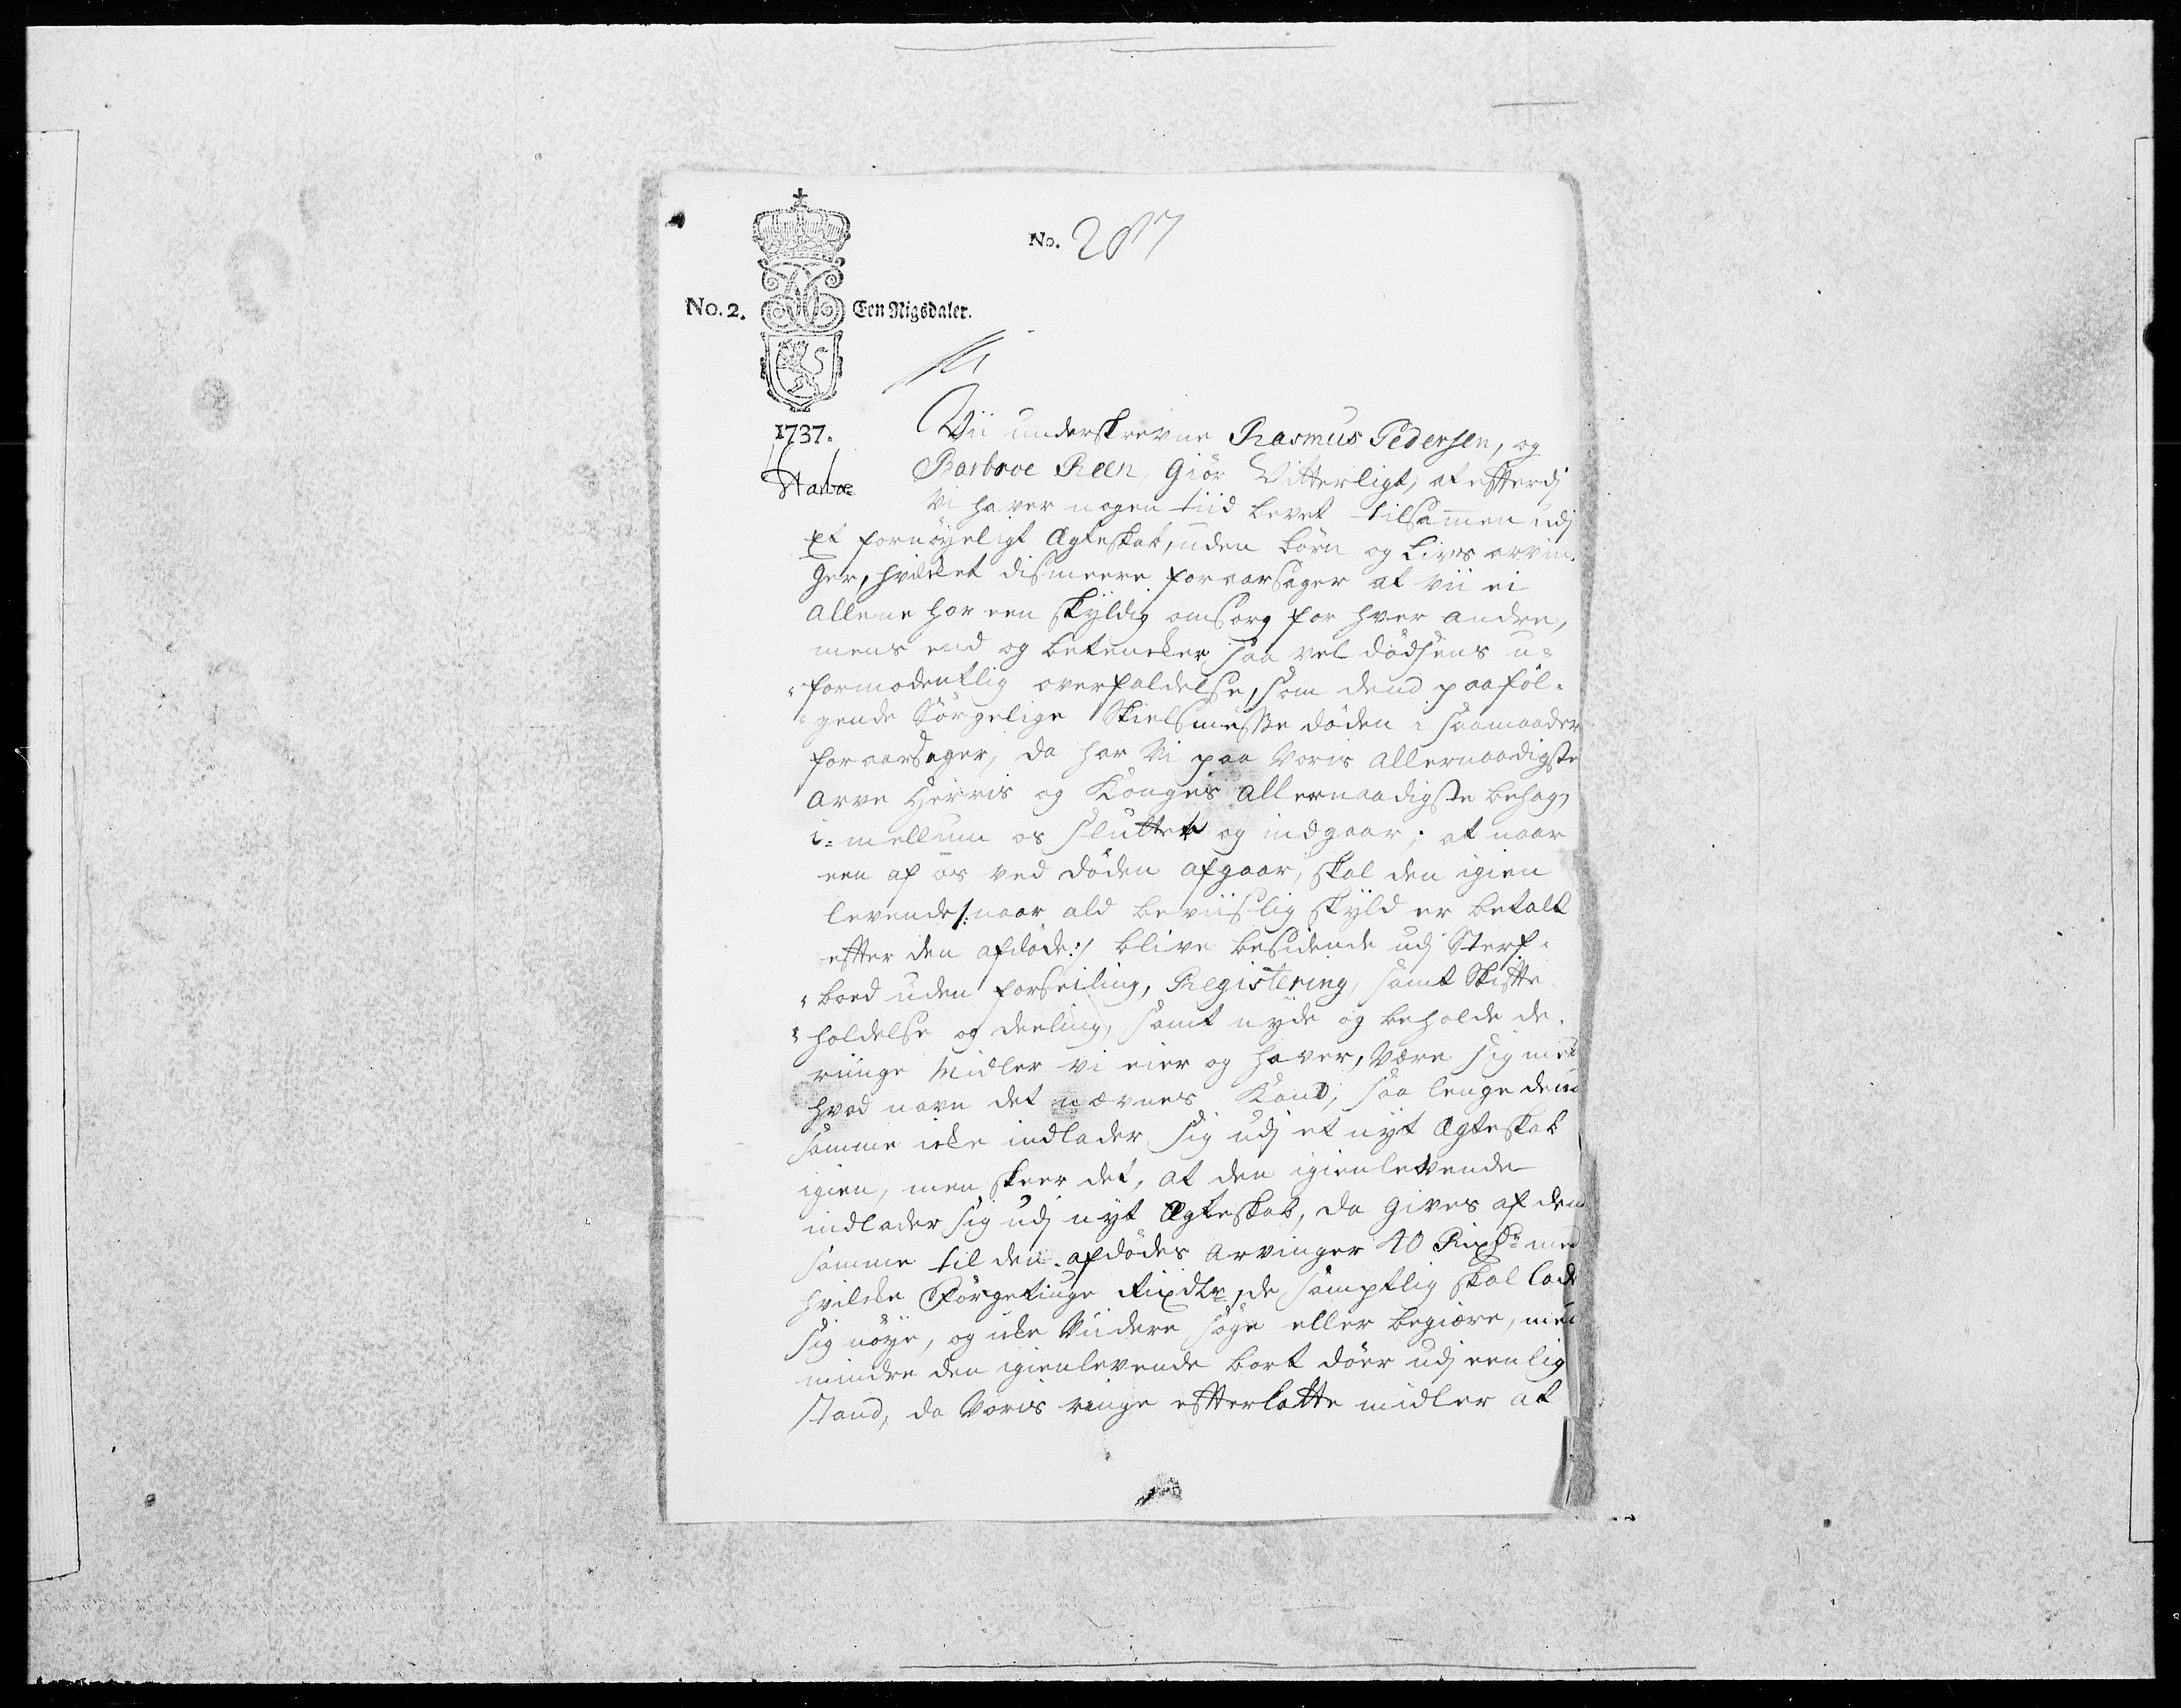 No. 287
No. 2. Een Rigsdaler.
1737.
Vii underskrevne Rasmus Pedersen, og
Barbroe Reen, Giör Vitterligt, at efterdj
Vi haver nogen tiid levet tilsammen udj
Et fornöyeligt Ægteskab, uden börn og livs arvin-
ger, hvilket dismeere foraarsager at vii ei
allene har een skyldig omsorg for hver andre,
mens end og betencker, saa vel dödsens u=
formodentlig overfaldelse, som dend paaföl-
gende Sörgelige Skielsmisse döden i saamaader
foraarsager, da har Vi paa Voris allernaadigste
Arve Herris og Konges allernaadigste behag,
i=mellum os sluttet og indgaar; at naar
een af os ved döden afgaar, skal den igien
levende /: naar ald beviislig skyld er betalt
efter den afdöde :/ blive besidende udj Sterf-
boed uden forseiling, Registering, samt Skifte
holdelse og deeling, samt nyde og beholde de
riinge Midler vi eier og haver, Være sig med
hvad navn det nævnes Kand, saa lenge dend
samme icke indlader sig udj et nyt Ægteskab
igien, men skeer det, at den igienlevende
indlader sig udj nyt Ægteskab, da gives af den
samme til den afdödes arvinger 40 Rixdr med
hvilcke Förgetiuge Rixdlr, de samptlig skal lade
sig nöye, og icke Viidere söge eller begiære, med
mindre den igienlevende bort döer udj eenlig
stand, da Voris ringe efterlatte midler at